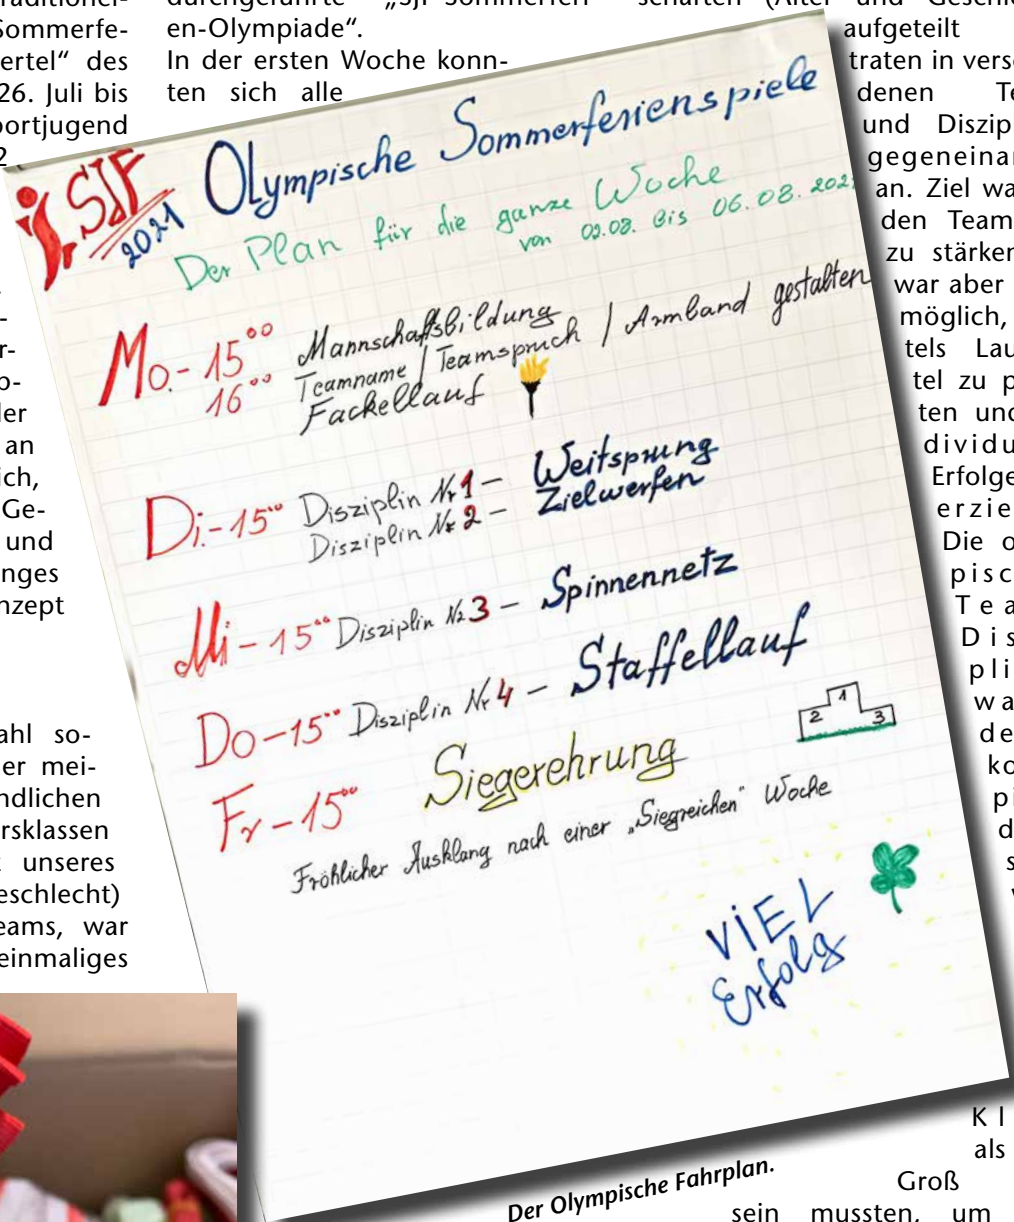 raditionel-
Sommerfe-
ertel" des
26. Juli bis
portjugend
2
-
-
r-
o-
ler
an
ich,
Ge-
und
nges
nzept
ahl so-
er mei-
ndlichen
rsklassen
unseres
eschlecht)
eams, war
einmaliges
durchgeführte „sjf-Sommerferi-
en-Olympiade".
In der ersten Woche konn-
ten sich alle
SJF
2021
Olympische Sommerferienspiele
Der Plan für die ganze Woche
von 02.08. bis 06.08.202
Mo.- 15⁰⁰ Mannschaftsbildung
Teamname / Teamspruch / Armband gestalten
16⁰⁰ Fackellauf
Di.-15⁰⁰ Disziplin Nr 1 – Weitsprung
Disziplin Nr 2 – Zielwerfen
Mi – 15⁰⁰ Disziplin Nr 3 – Spinnennetz
Do – 15⁰⁰ Disziplin Nr 4 – Staffellauf
Fr – 15⁰⁰ Siegerehrung
2 1 3
Fröhlicher Ausklang nach einer „Siegreichen" Woche
ViEL
Erfolg
Der Olympische Fahrplan.
schaften (Alter und Geschl
aufgeteilt
traten in versc
denen Te
und Diszip
gegeneinar
an. Ziel wa
den Team
zu stärken
war aber
möglich,
tels Lau
tel zu p
ten und
dividu
Erfolge
erzie
Die o
pisc
Tea
Dis
pli
wa
de
ko
pi
d
s
Kl
als
Groß
sein mussten, um